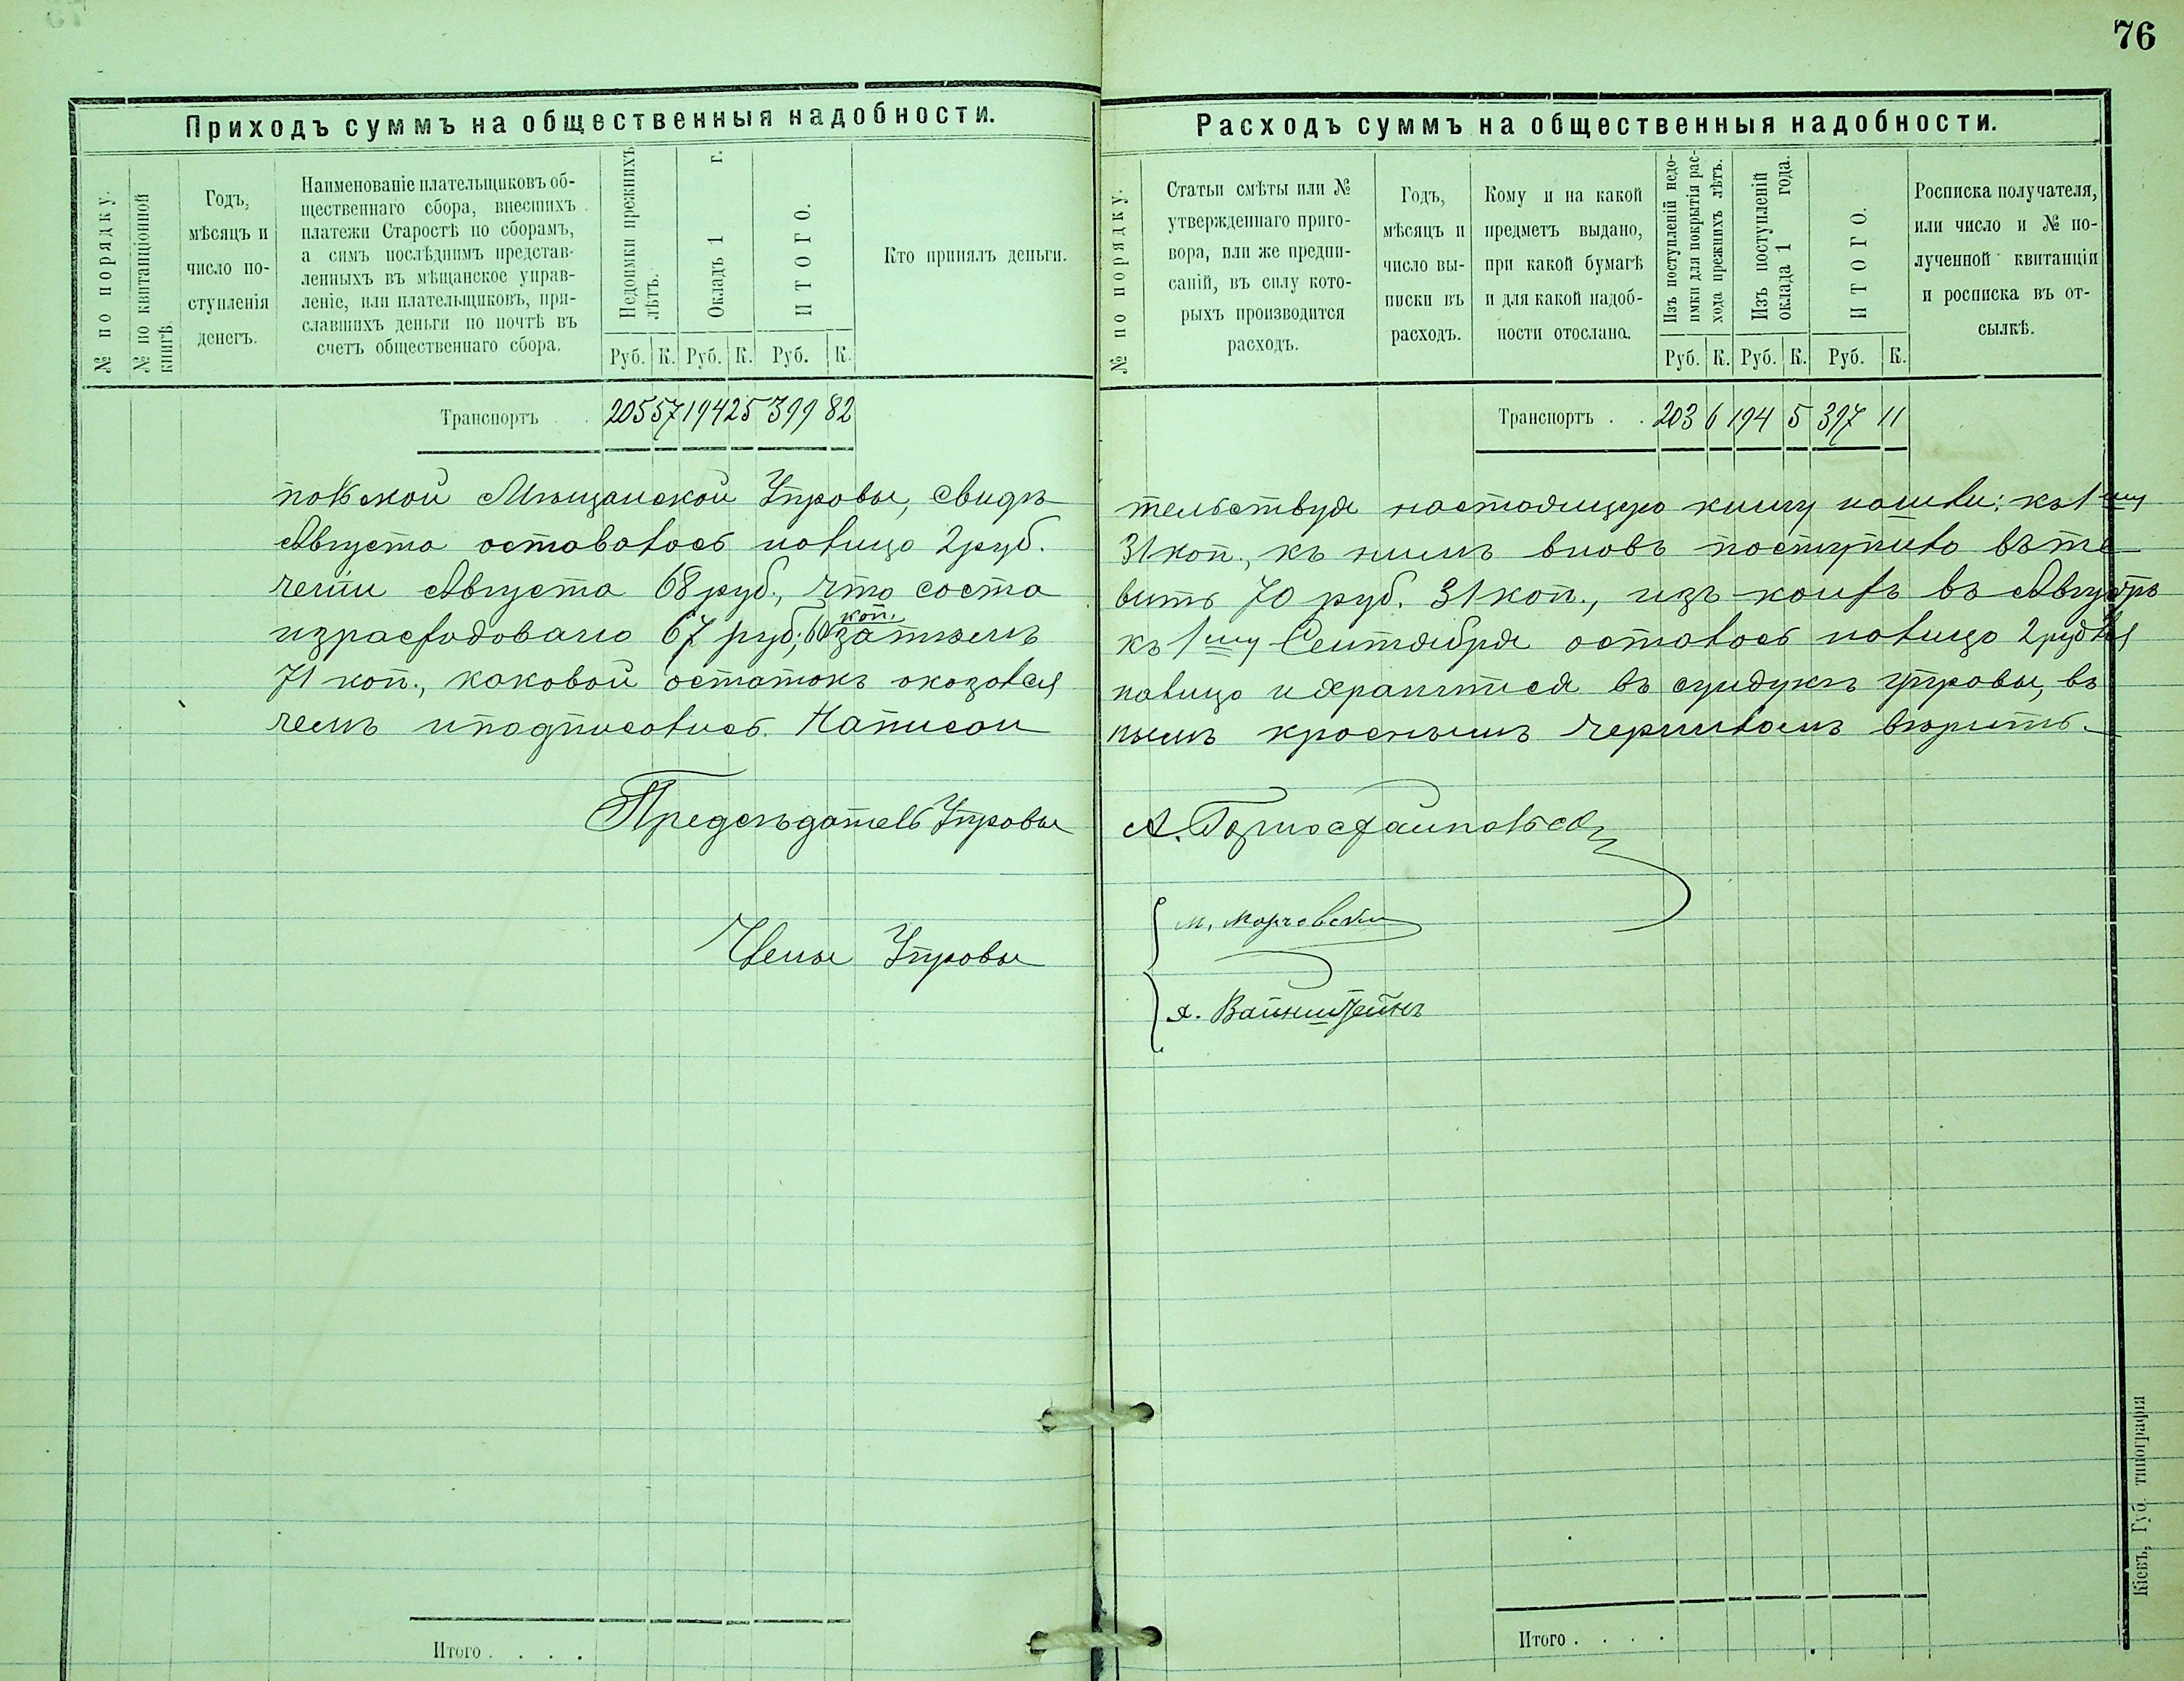 76
Приходъ суммъ на общественныя надобности.
№ по порядку.
№ по квитанціонной
книгѣ.
Годъ,
мѣсяцъ и
число по-
ступленія
денегъ.
Наименованіе плательщиковъ об-
щественнаго сбора, внесшихъ
платежи Старостѣ по сборамъ,
а симъ послѣднимъ представ-
ленныхъ въ мѣщанское управ-
леніе, или плательщиковъ, при-
славшихъ деньги по почтѣ въ
счетъ общественнаго сбора.
Недоимки прежнихъ
лѣтъ.
Окладъ 1 г.
ИТОГО.
Руб. К. Руб. К. Руб. К.
Кто принялъ деньги.
Транспортъ . . 205 57 194 25 399 82
Расходъ суммъ на общественныя надобности.
№ по порядку.
Статьи смѣты или №
утвержденнаго приго-
вора, или же предпи-
саній, въ силу кото-
рыхъ производится
расходъ.
Годъ,
мѣсяцъ и
число вы-
писки въ
расходъ.
Кому и на какой
предметъ выдано,
при какой бумагѣ
и для какой надоб-
ности отослано.
Изъ поступленій недо-
имки для покрытія рас-
хода прежнихъ лѣтъ.
Изъ поступленій
оклада 1 года.
ИТОГО.
Руб. К. Руб. К. Руб. К.
Росписка получателя,
или число и № по-
лученной квитанціи
и росписка въ от-
сылкѣ.
Транспортъ . . 203 6 194 5 397 11
польской Мѣщанской Управы, свидѣ тельствуя настоящую книгу нашли: къ 1му
Августа оставалось налицо 2 руб. 31 коп., къ нимъ вновь поступило въ те
ченіи Августа 68 руб., что соста вить 70 руб. 31 коп., изъ коихъ въ Августѣ
израсходовано 67 руб, 60 коп. затѣмъ къ 1му Сентября осталось налицо 2 руб
71 коп., каковой остатокъ оказался налицо и хранится въ сундукѣ управы, въ
чемъ и подписались. Написан нымъ краснымъ чернилами вѣрить.
Предсѣдатель Управы
Члены Управы
М. Марчевскій
Я. Вайнштейнъ
Итого . . . .
Итого . . . .
Кіевъ, Губ. типографія